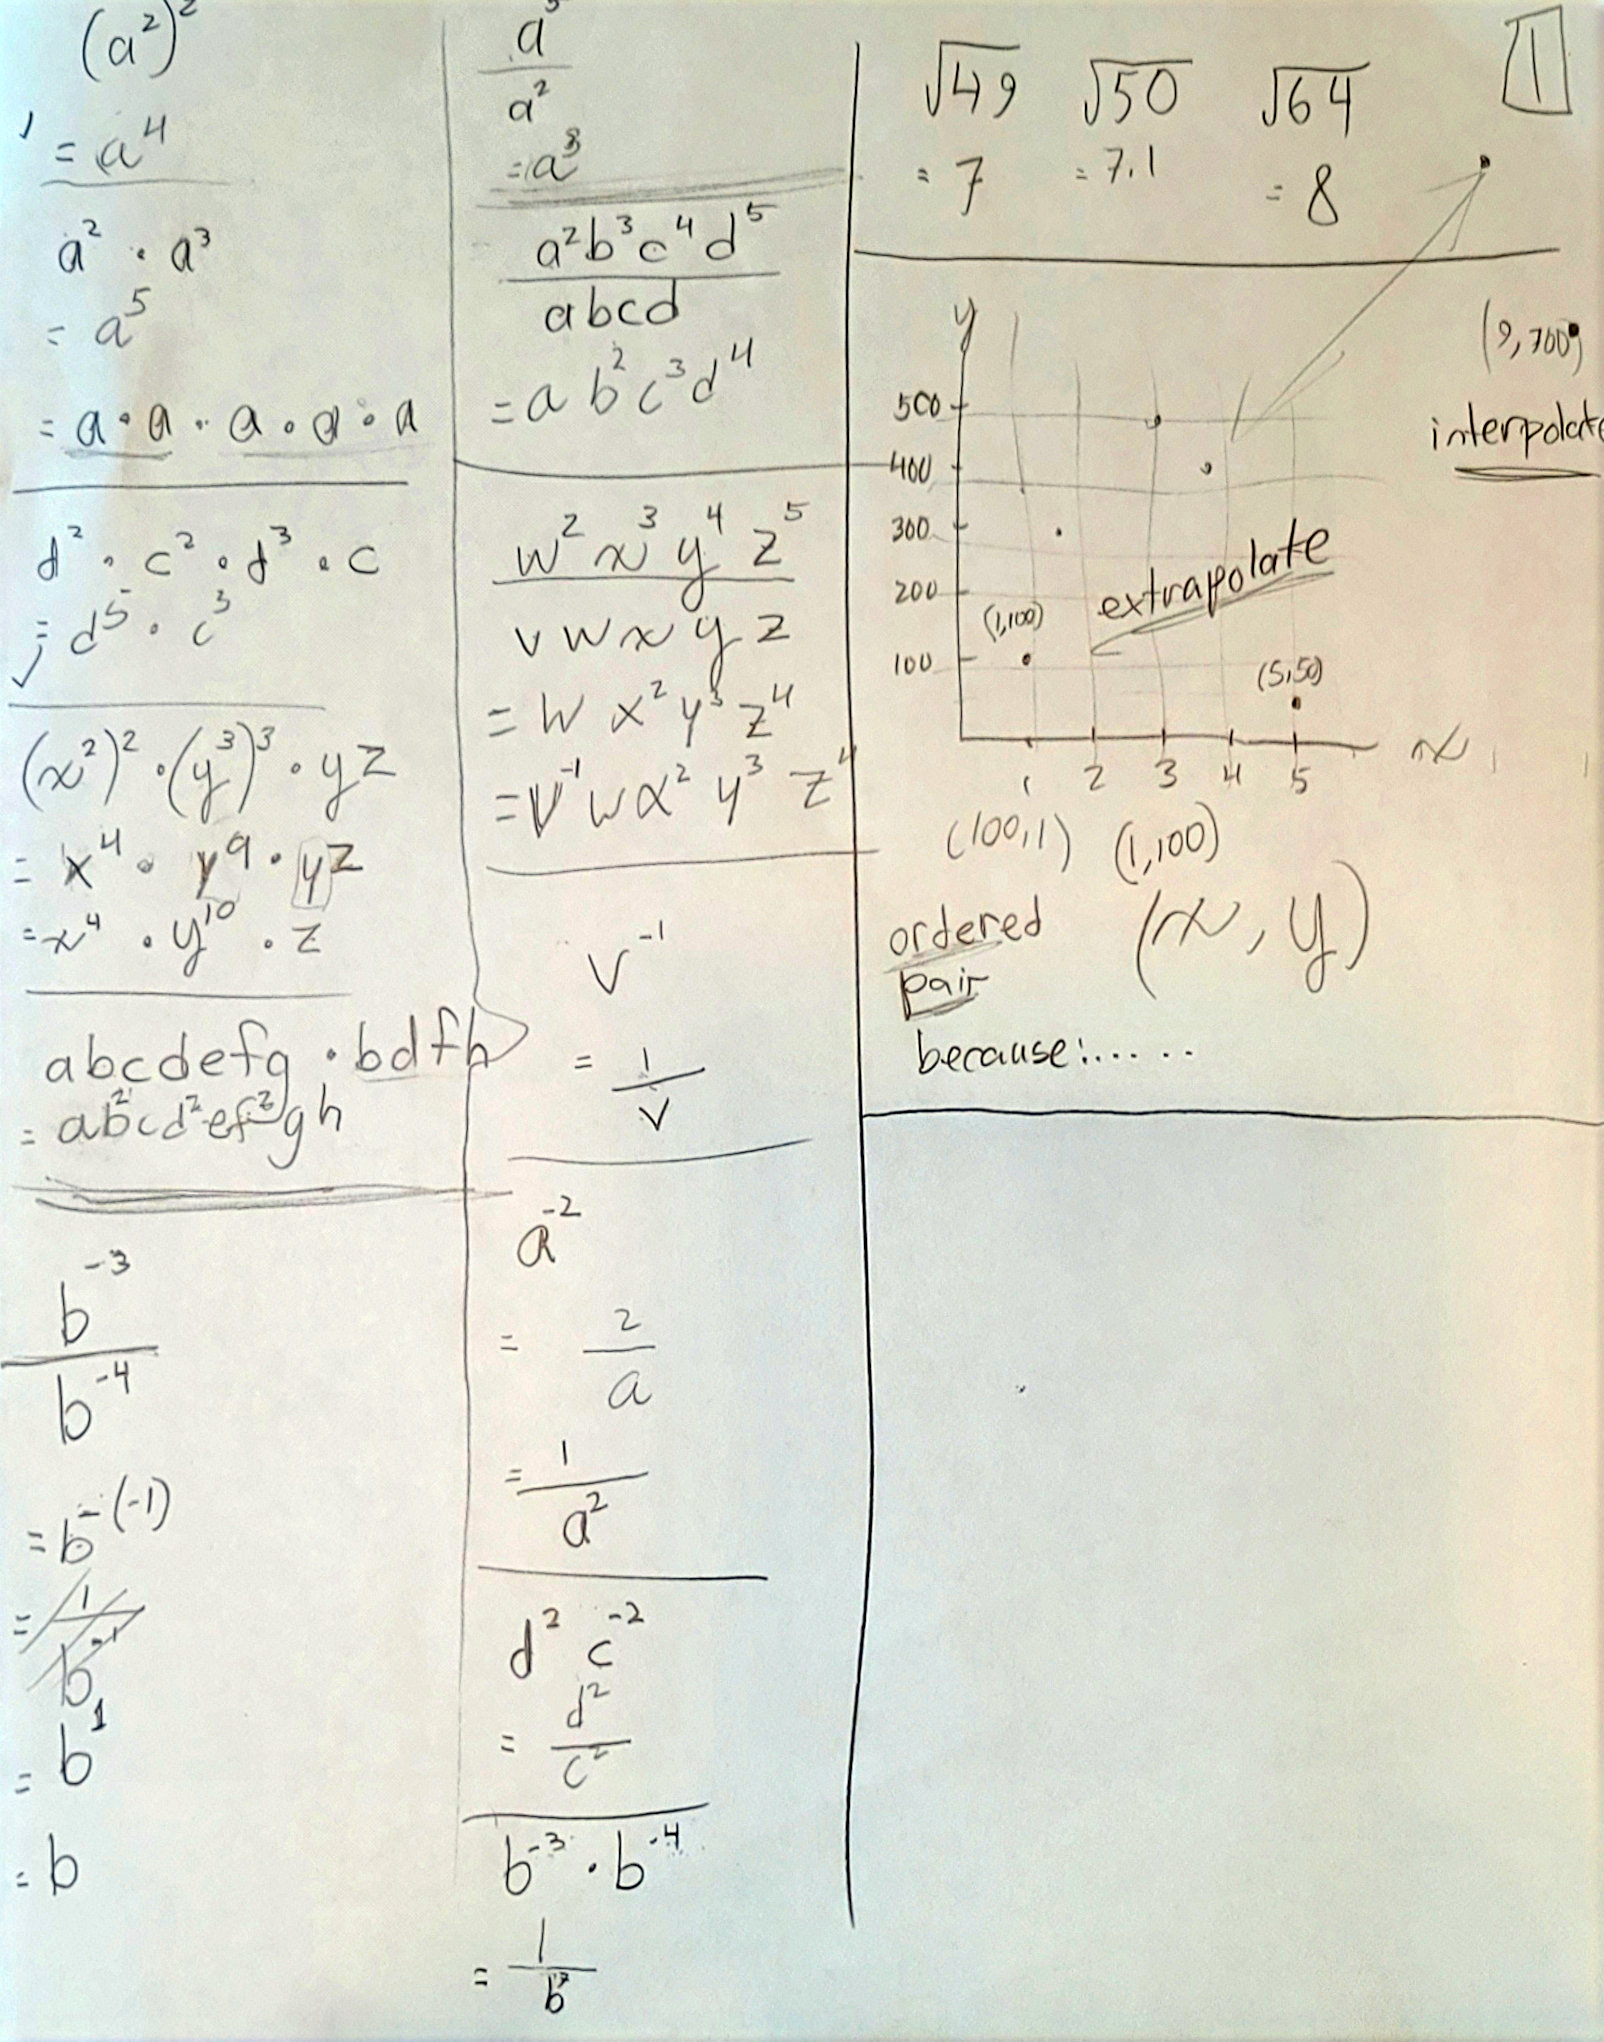 (a²)²
= a⁴
a² · a³
= a⁵
= a · a · a · a · a
d² · c² · d³ · c
= d⁵ · c³
(x²)² · (y³)³ · yz
= x⁴ · y⁹ · yz
= x⁴ · y¹⁰ · z
abcdefg · bdfh
= ab²cd²ef²gh
b⁻³
b⁻⁴
= b⁻⁽⁻¹⁾
= 1
b⁻¹
= b¹
= b
a⁵
a²
= a³
a²b³c⁴d⁵
abcd
= ab²c³d⁴
w²x³y⁴z⁵
vwxyz
= wx²y³z⁴
= v⁻¹wx²y³z⁴
v⁻¹
= 1
v
a⁻²
= 2
a
= 1
a²
d² c⁻²
= d²
c²
b⁻³ · b⁻⁴
= 1
b⁷
√49 √50 √64
= 7 = 7.1 = 8
1
y
(9,700)
500
interpolate
400
300
extrapolate
200
(1,100)
100
(5,50)
1 2 3 4 5
x
(100,1) (1,100)
ordered (x, y)
pair
because:.....